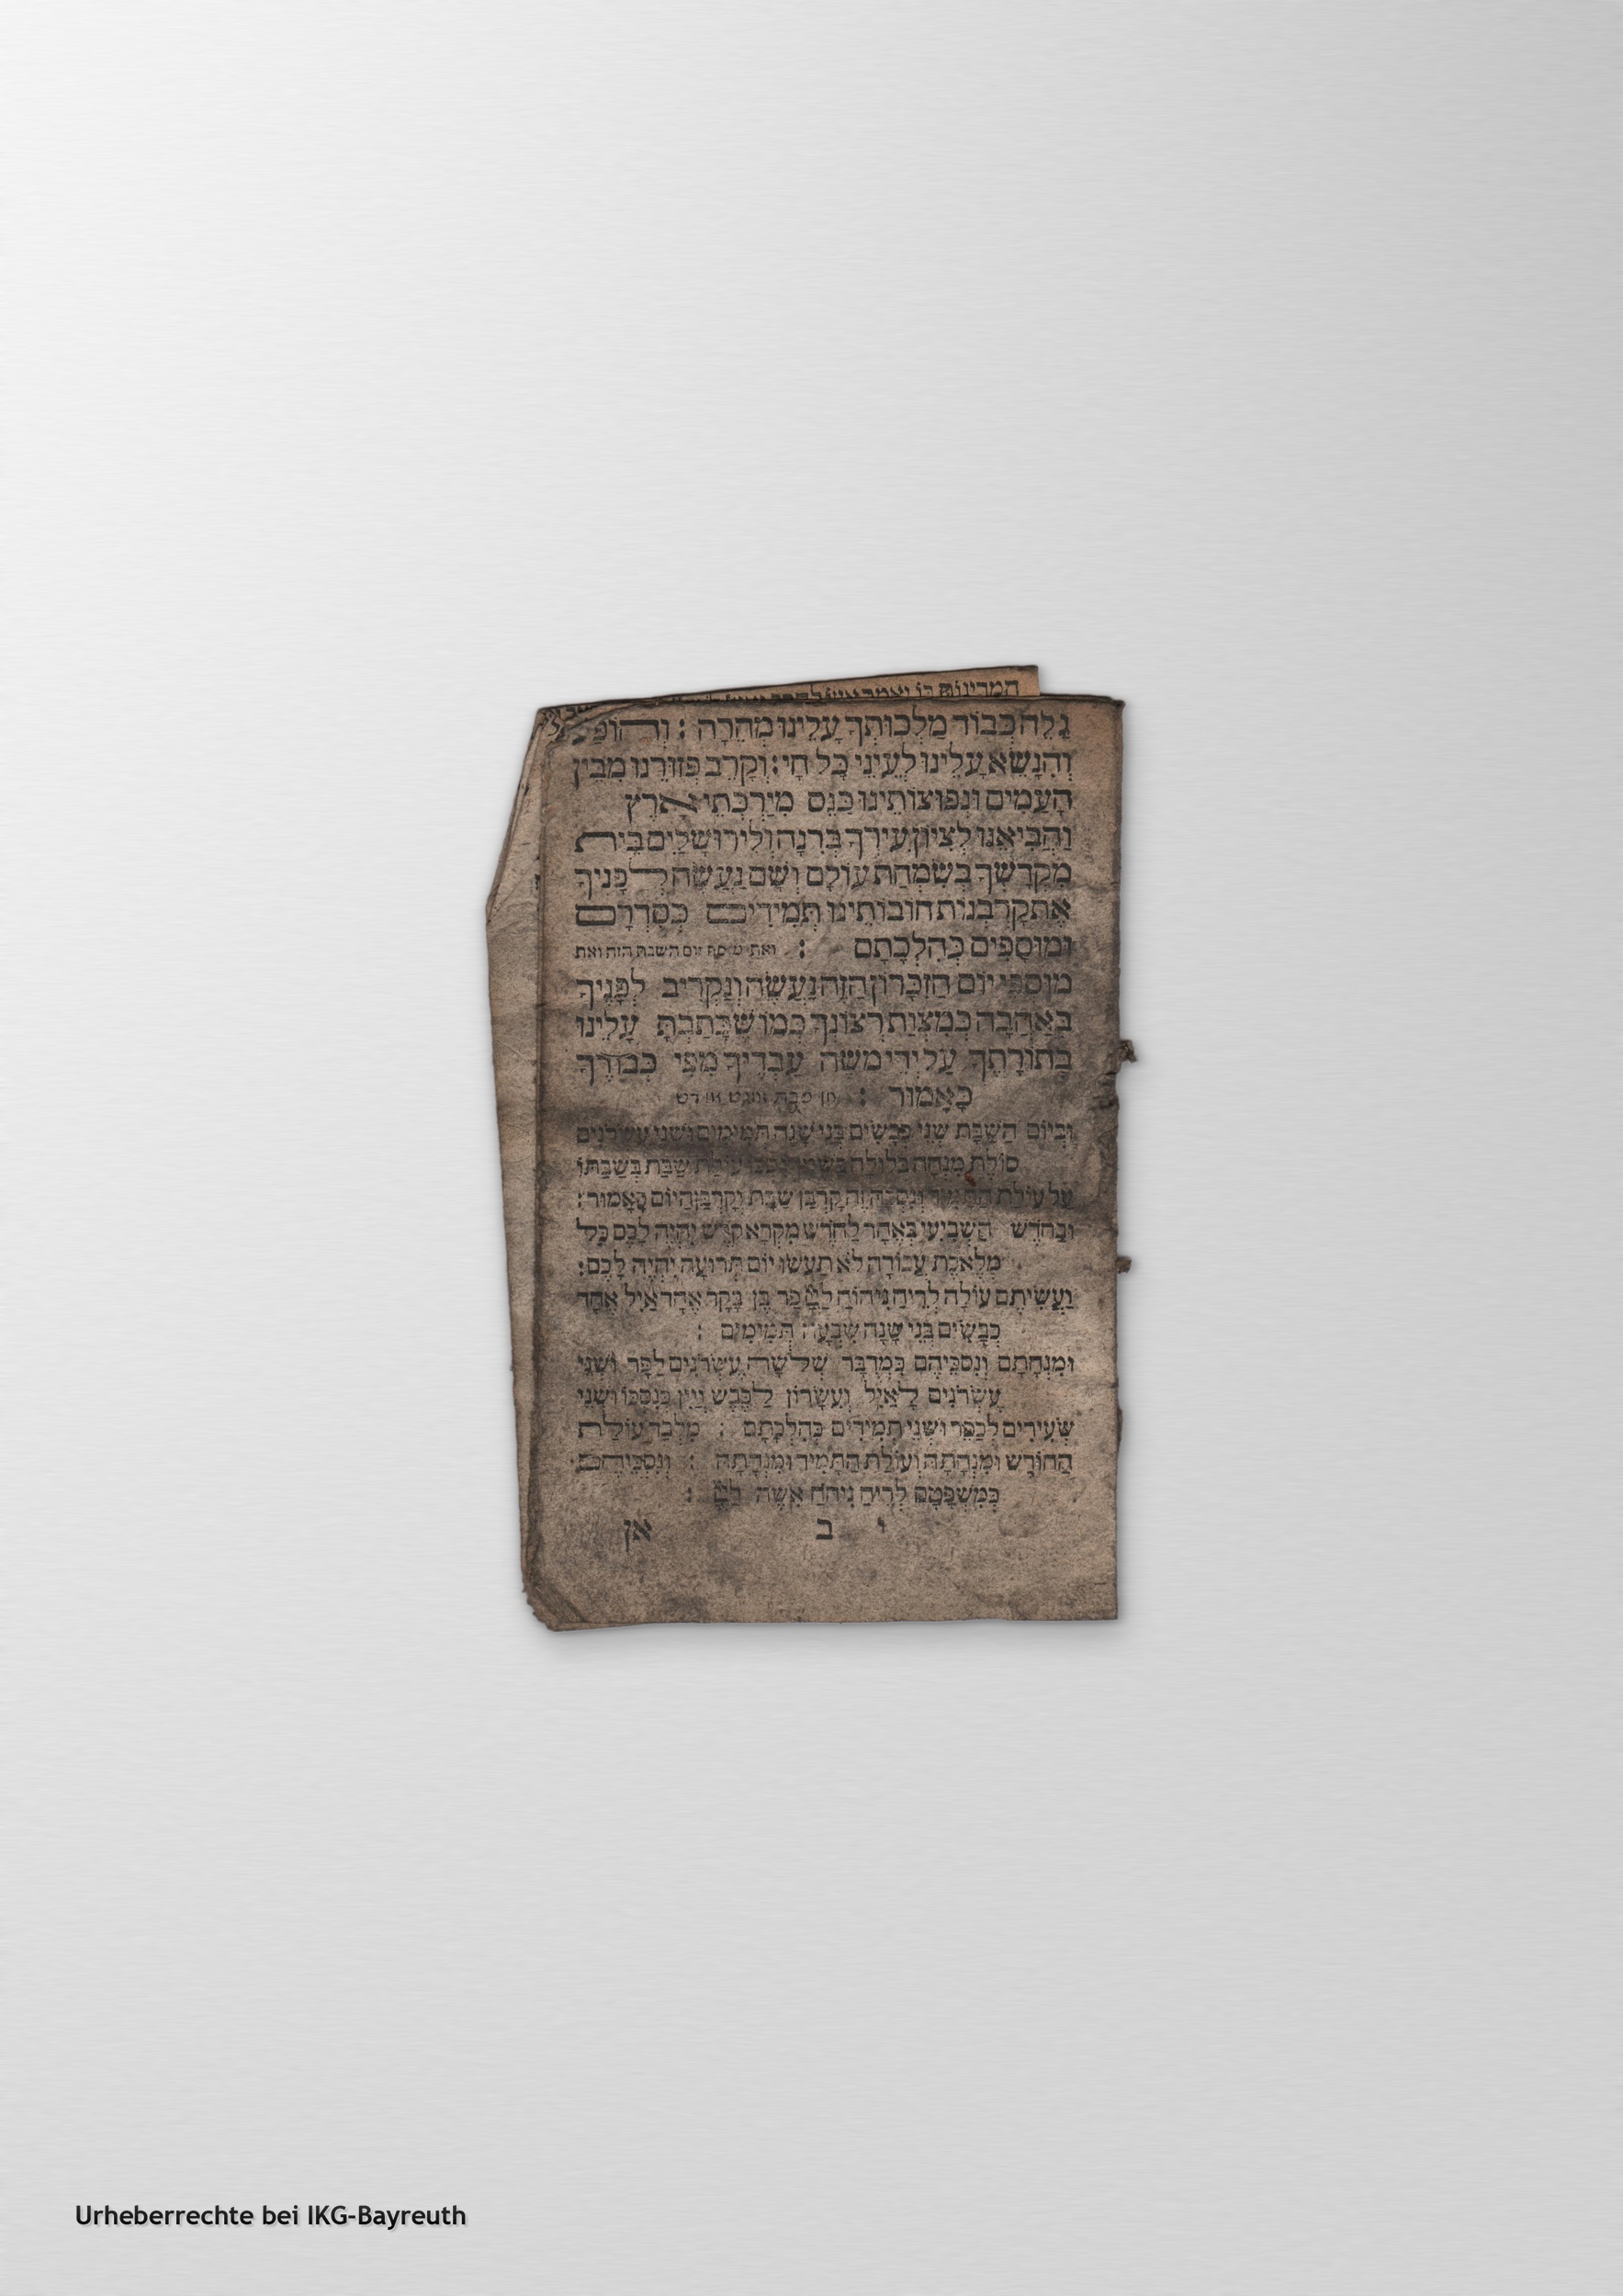 המדינות בו יאמר
גַלֵה כְבוֹד מַלְכוּתְךָ עָלֵינוּ מְהֵרָה : וְהוֹפַע
וְהִנָשֵׂא עָלֵינוּ לְעֵינֵי כָּל חָי : וְקָרֵב פְּזוּרֵנוּ מִבֵּין
הָעַמִים וּנְפוּצוֹתֵינוּ כַּנֵס מִיַרְכְּתֵי אָרֶץ
וַהֲבִיאֵנוּ לְצִיוֹן עִירְךָ בְּרִנָה וְלִירוּשָׁלַיִם בֵּית
מִקְדָשְׁךָ בְּשִׂמְחַת עוֹלָם וְשָׁם נַעֲשֶׂה לְפָנֶיךָ
אֶת קָרְבְּנוֹת חוֹבוֹתֵינוּ תְּמִידִים כְּסִדְרָם
וּמוּסָפִים כְּהִלְכָתָם : ואת מוסף יום השבת הזה ואת
מוּסְפֵי יוֹם הַזִכָּרוֹן הַזֶה נַעֲשֶׂה וְנַקְרִיב לְפָנֶיךָ
בְּאַהֲבָה כְּמִצְוַת רְצוֹנְךָ כְּמוֹ שֶׁכָּתַבְתָּ עָלֵינוּ
בְּתוֹרָתֶךָ עַל יְדֵי מֹשֶׁה עַבְדֶיךָ מִפִּי כְבוֹדֶךָ
כָּאָמוּר :
וּבְיוֹם הַשַׁבָּת שְׁנֵי כְבָשִׂים בְּנֵי שָׁנָה תְּמִימִים וּשְׁנֵי עֶשְׂרוֹנִים
סוֹלֶת מִנְחָה בְּלוּלָה בַשֶׁמֶן וְנִסְכּוֹ עוֹלַת שַׁבַּת בְּשַׁבַּתּוֹ
עַל עוֹלַת הַתָּמִיד וְנִסְכָּהּ זֶה קָרְבַּן שַׁבָּת וְקָרְבַּן הַיוֹם כָּאָמוּר :
וּבַחֹדֶשׁ הַשְׁבִיעִי בְּאֶחָד לַחֹדֶשׁ מִקְרָא קֹדֶשׁ יִהְיֶה לָכֶם כָּל
מְלֶאכֶת עֲבוֹדָה לֹא תַעֲשׂוּ יוֹם תְּרוּעָה יִהְיֶה לָכֶם :
וַעֲשִׂיתֶם עוֹלָה לְרֵיחַ נִיחוֹחַ לַיְיָ פַּר בֶּן בָּקָר אֶחָד אַיִל אֶחָד
כְּבָשִׂים בְּנֵי שָׁנָה שִׁבְעָה תְּמִימִים :
וּמִנְחָתָם וְנִסְכֵּיהֶם כִּמְדֻבָּר שְׁלֹשָׁה עֶשְׂרֹנִים לַפָּר וּשְׁנֵי
עֶשְׂרֹנִים לָאַיִל וְעִשָׂרוֹן לַכֶּבֶשׂ וְיַיִן כְּנִסְכּוֹ וּשְׁנֵי
שְׂעִירִים לְכַפֵּר וּשְׁנֵי תְמִידִים כְּהִלְכָתָם : מִלְבַד עוֹלַת
הַחוֹדֶשׁ וּמִנְחָתָהּ וְעוֹלַת הַתָּמִיד וּמִנְחָתָהּ : וְנִסְכֵּיהֶם
כְּמִשְׁפָּטָם לְרֵיחַ נִיחֹחַ אִשֶׁה לַיְיָ :
י ב אן
Urheberrechte bei IKG-Bayreuth